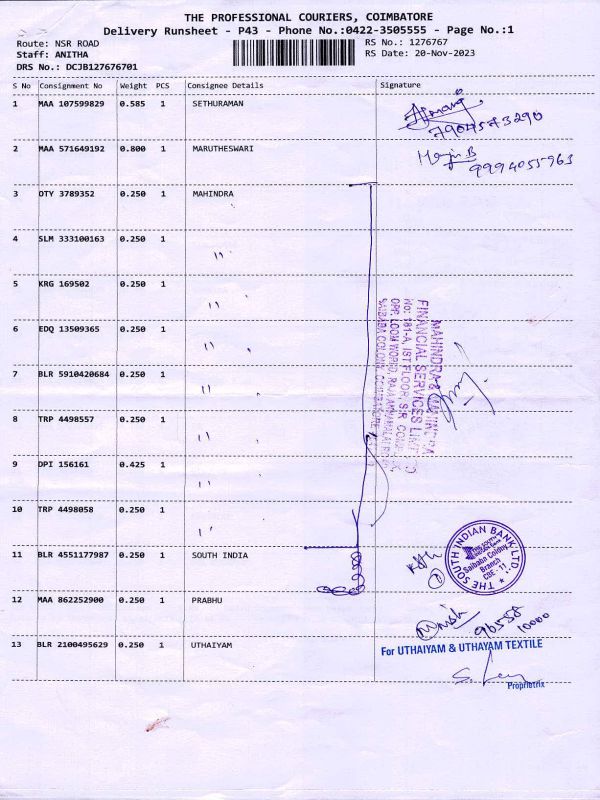 THE PROFESSIONAL COURIERS, COIMBATORE
Delivery Runsheet - P43 - Phone No.:0422-3505555 - Page No.:1
Route: NSR ROAD
RS No.: 1276767
Staff: ANITHA
RS Date: 20-Nov-2023
DRS No.: DCJB127676701
S No Consignment No Weight PCS Consignee Details Signature
1 MAA 107599829 0.585 1 SETHURAMAN
7904573290
2 MAA 571649192 0.800 1 MARUTHESWARI
9994055963
3 DTY 3789352 0.250 1 MAHINDRA
4 SLM 333100163 0.250 1 "
5 KRG 169502 0.250 1 "
6 EDQ 13509365 0.250 1 "
7 BLR 5910420684 0.250 1 "
8 TRP 4498557 0.250 1 "
9 DPI 156161 0.425 1 "
10 TRP 4498058 0.250 1 "
MAHINDRA & MAHINDRA
FINANCIAL SERVICES LIMITED
No: 181-A, IST FLOOR, S.R.
OPP. LOOM WORLD,
SAIBABA COLONY, COIMBATORE
11 BLR 4551177987 0.250 1 SOUTH INDIA
THE SOUTH INDIAN BANK LTD.
Saibaba Colony
Branch
CBE - 11
12 MAA 862252900 0.250 1 PRABHU
96558
10000
13 BLR 2100495629 0.250 1 UTHAIYAM
For UTHAIYAM & UTHAYAM TEXTILE
Proprietrix